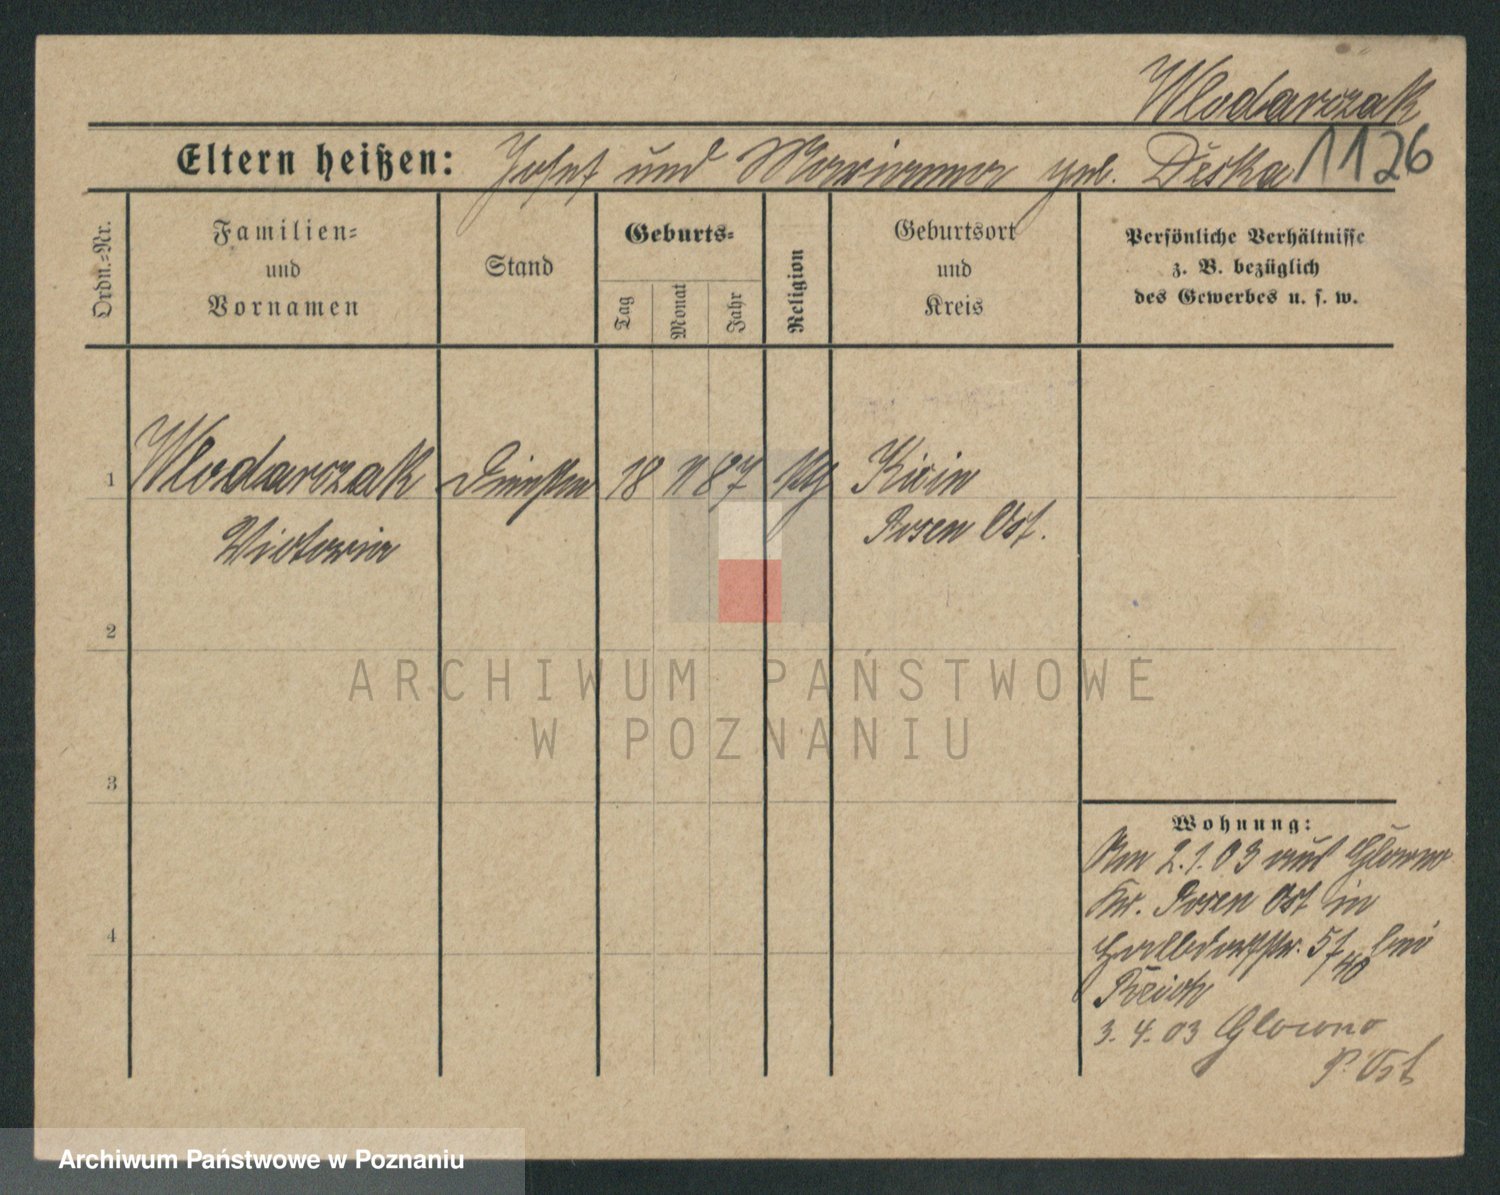 Wlodarczak
1126
Eltern heißen: Josef und Marianna geb. Deska
Ordn.-Nr.
Familien-
und
Vornamen
Stand
Geburts-
Tag
Monat
Jahr
Religion
Geburtsort
und
Kreis
Persönliche Verhältnisse
z. B. bezüglich
des Gewerbes u. s. w.
1
Wlodarczak
Victoria
18 11 87
Posen Ost.
2
ARCHIWUM PAŃSTWOWE
W POZNANIU
3
4
Wohnung:
Am 2.1.03 aus Glowno
Kr. Posen Ost in
bei
3.4.03 Glowno
P. Ost
Archiwum Państwowe w Poznaniu